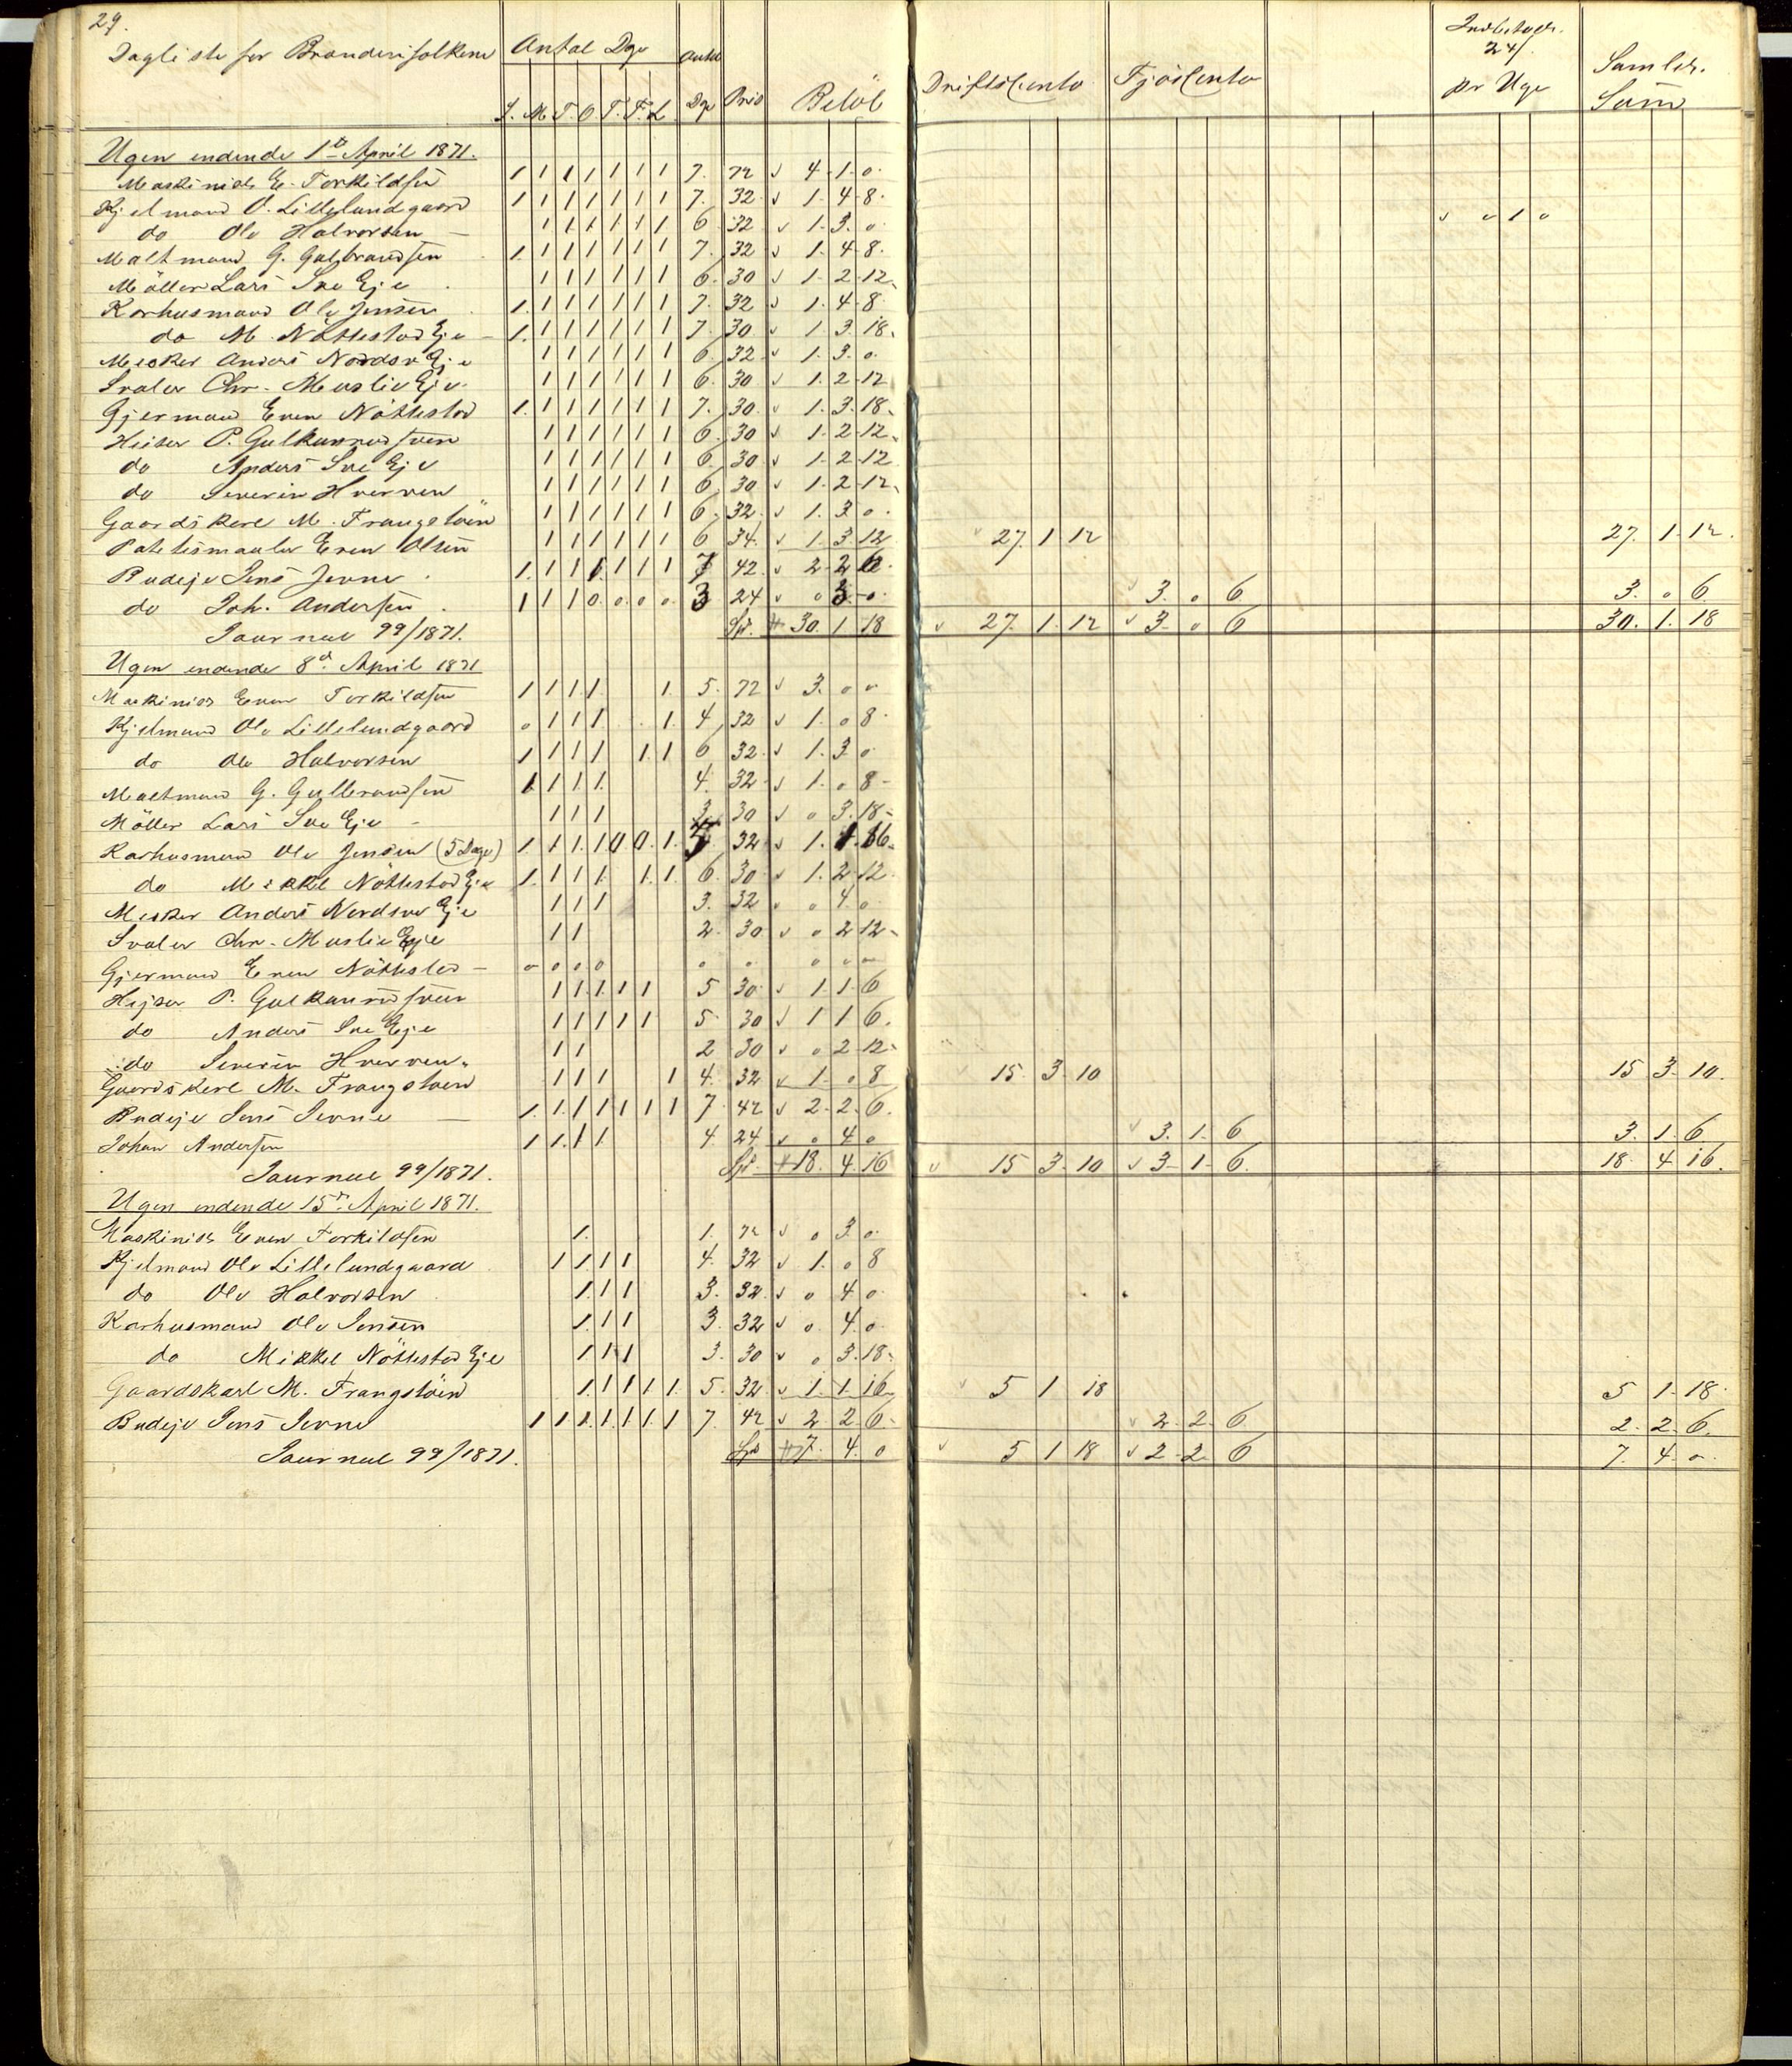 29.
Dagliste for Brænderifolkene Antal Dge Antal Dge Pris Beløb Driftsconto Fjøsconto Indbetagtr. 24/ pr Uge Samlet Sum
S. M. T. O. T. F. L.
Ugen endende 1ste April 1871.
Maskinist E. Torkildsen 1 1 1 1 1 1 1 7. 72 4 1 0
Kjelmand O. Lillelundgaard 1 1 1 1 1 1 1 7. 32 1. 4 8.
do Ole Halvorsen 1 1 1 1 1 1 6 32 1. 3. 0 0 1 0
Maltmand G. Gulbrandsen 1. 1 1 1 1 1 1 7. 32 1. 4. 8.
Möller Lars Sve Eje 1 1 1 1 1 1 6. 30 1. 2 12
Karhusmand Ole Jensen 1. 1 1 1 1 1 1 7. 32 1. 4. 8
do M. Nöttestad Eje 1. 1 1 1 1 1 1 7. 30 1 3. 18.
Mesker Anders Nordsve Eje 1 1 1 1 1 1 6. 32 1. 3. 0.
Svaler Chr. Muslie Eje 1 1 1 1 1 1 6. 30 1. 2 12
Gjermand Even Nöttestad 1. 1 1 1 1 1 1 7. 30. 1. 3. 18.
Heiser P. Gulkunrudsveen 1 1 1 1 1 1 6. 30 1. 2 12.
do Anders Sve Eje 1 1 1 1 1 1 6. 30 1. 2 12
do Severin Hverven 1 1 1 1 1 1 6. 30 1. 2 12.
Gaardskarl M. Frangstöen 1 1 1 1 1 1 6. 32. 1. 3 0.
Potetesmaaler Even Olsen 1 1 1 1 1 1 6 34. 1. 3 12 27. 1 12 27. 1. 12.
Budeje Jens Jevne 1. 1 1 1 1 1 1 7 42 2 2 6. 
do Joh. Andersen 1 1 1 0. 0. 0. 0. 3 24 0 3 0. 3. 0 6 3. 0 6.
Journal 99/1871. Spd. 30. 1 18 27. 1. 12 3 0 6 30. 1. 18
Ugen endende 8de April 1871
Maskinist Even Torkildsen 1 1 1 1. 1. 5. 72 3. 0 0
Kjelmand Ole Lillelundgaard 0 1 1 1 1. 4 32 1. 0 8.
do Ole Halvorsen 1 1 1 1 1. 1 6 32 1. 3 0.
Maltmand G. Gulbrandsen 1 1 1 1. 4. 32 1. 0 8
Möller Lars Sve Eje 1 1 1 3. 30 0 3. 18
Karhusmand Ole Jensen (5 Dage) 1. 1 1. 1 0 0. 1. 5 32 1. 1 16
do Mikkel Nöttestad Eje 1. 1 1 1. 1. 1. 6. 30 1. 2 12
Mesker Anders Nordsve Eje 1 1 1 3. 32 0 4. 0
Svaler Chr. Muslie Eje 1 1 2. 30 0 2 12
Gjermand Even Nöttestad 0 0 0 0 0 0 0 0 0
Hejser P. Gulkunrudsveen 1 1. 1. 1 1 5 30. 1 1 6
do Anders Sve Eje 1 1 1 1 1 5 30 1 1 6.
do Severin Hverven. 1 1 2 30 0 2 12.
Gaardskarl M. Frangstöen 1 1 1 1 4. 32 1. 0 8 15. 3. 10 15 3. 10.
Budeje Jens Jevne 1. 1. 1 1 1 1 1 7 42 2. 2. 6.
Johan Andersen 1 1. 1 1. 4. 24 0 4 0 3. 1. 6 3. 1. 6
Journal 99/1871. Spd. 18. 4. 16 15 3. 10 3. 1. 6. 18. 4 16.
Ugen endende 15de April 1871.
Maskinist Even Torkildsen 1. 1. 72 0 3 0.
Kjelmand Ole Lillelundgaard 1 1 1 1 4. 32 1. 0 8
do Ole Halvorsen 1 1 1 3. 32 0 4 0.
Karhusmand Ole Jensen 1. 1 1 3. 32 0. 4. 0
do Mikkel Nöttestad Eje 1 1 1 3. 30 0 3. 18.
Gaardskarl M. Frangstöen 1. 1 1 1. 1. 5. 32 1. 1. 16 5 1 18 5 1. 18.
Budeje Jens Jevne 1 1 1. 1. 1. 1. 1 7. 42 2 2 6. 2. 2. 6 2. 2. 6.
Journal 99/1871. Spd 7. 4. 0 5 1 18 2. 2. 6 7. 4. 0.